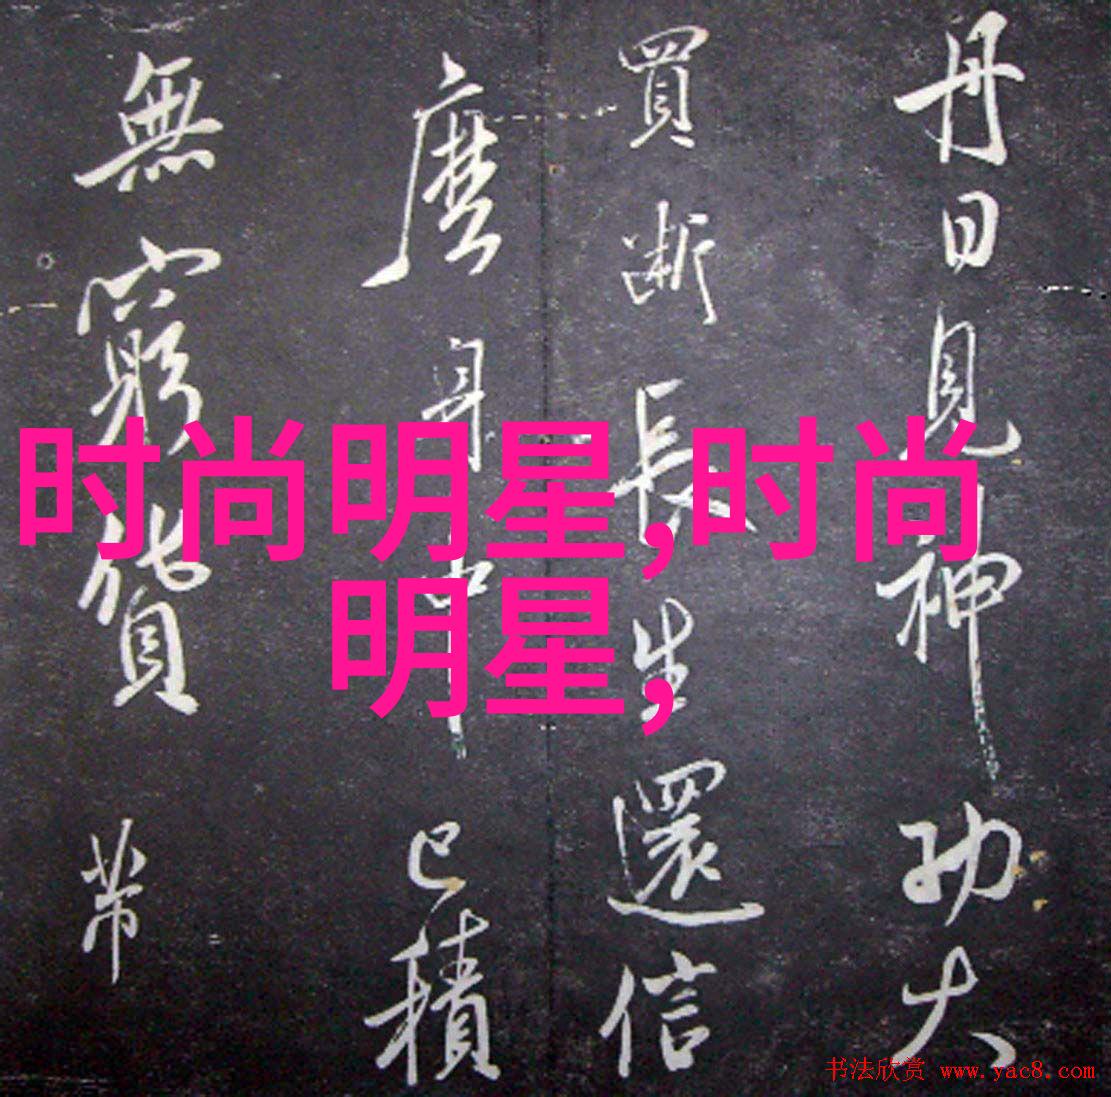 丹日見神功大
買斷長生還信
麼身中已積
無窮貨帶
时尚明星,时尚
明星,
书法欣赏 www.yac8.com